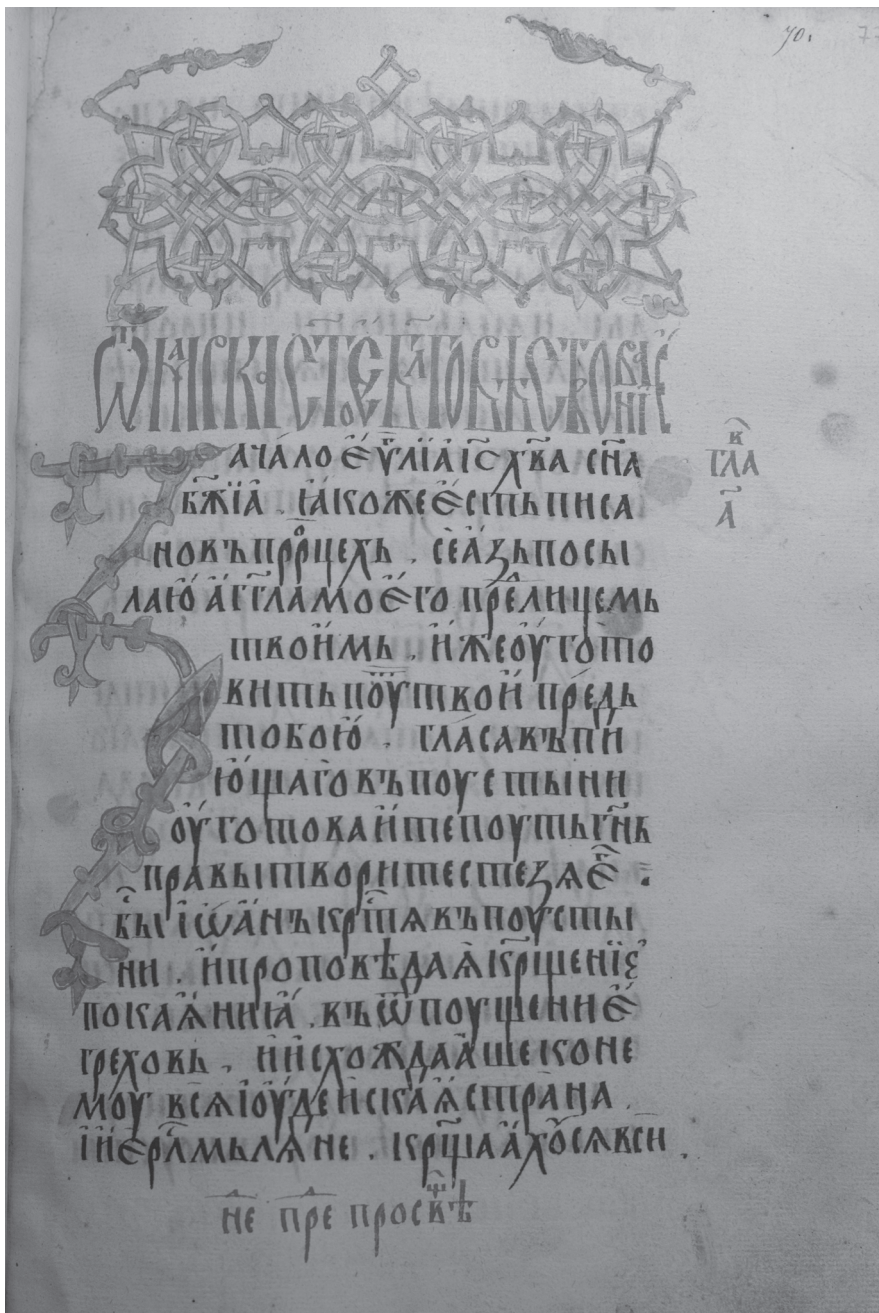 70.
77
Ѿ маⷬ҇ка ст҃ое бл҃говѣствованїе
Зачало еѵⷢ҇лїа і҃с х҃ва сн҃а
главⷡ҇ а҃
бж҃їа . ꙗкоже есть писа
но въ прⷪ҇рцехъ . се азъ посы
лаю аг҃гла моего преⷣ лицемь
твоимь . иже оуготo
вить поуⷮ твой предь
тобою . гласа въпи
ющаго въ поустыни
оуготовайте поуть гн҃ь
правы творите стезѧ еⷢ҇ .
быⷭ҇ іѡанъ крⷭ҇тѧ въ поусты
ни . и проповѣдаѧ кр҃щенїе
покаѧниꙗ . въ ѿпоущение
греховь . и исхождааше к не
моу всѧ іоудейскаѧ страна
і иерⷭ҇лмьлѧне . крⷭ҇щаахоусѧ вси .
неⷣ преⷣ просвѣⷳ҇